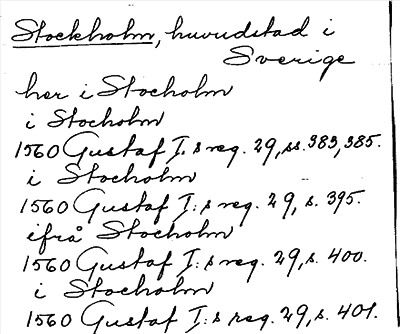 Stockholm, huvudstad i
Sverige
her i Stocholm
i Stocholm
1560 Gustaf I:s reg. 29, ss. 383, 385.
i Stocholm
1560 Gustaf I:s reg. 29, s. 395.
ifrå Stocholm
1560 Gustaf I:s reg. 29, s. 400.
i Stocholm
1560 Gustaf I:s reg. 29, s. 401.